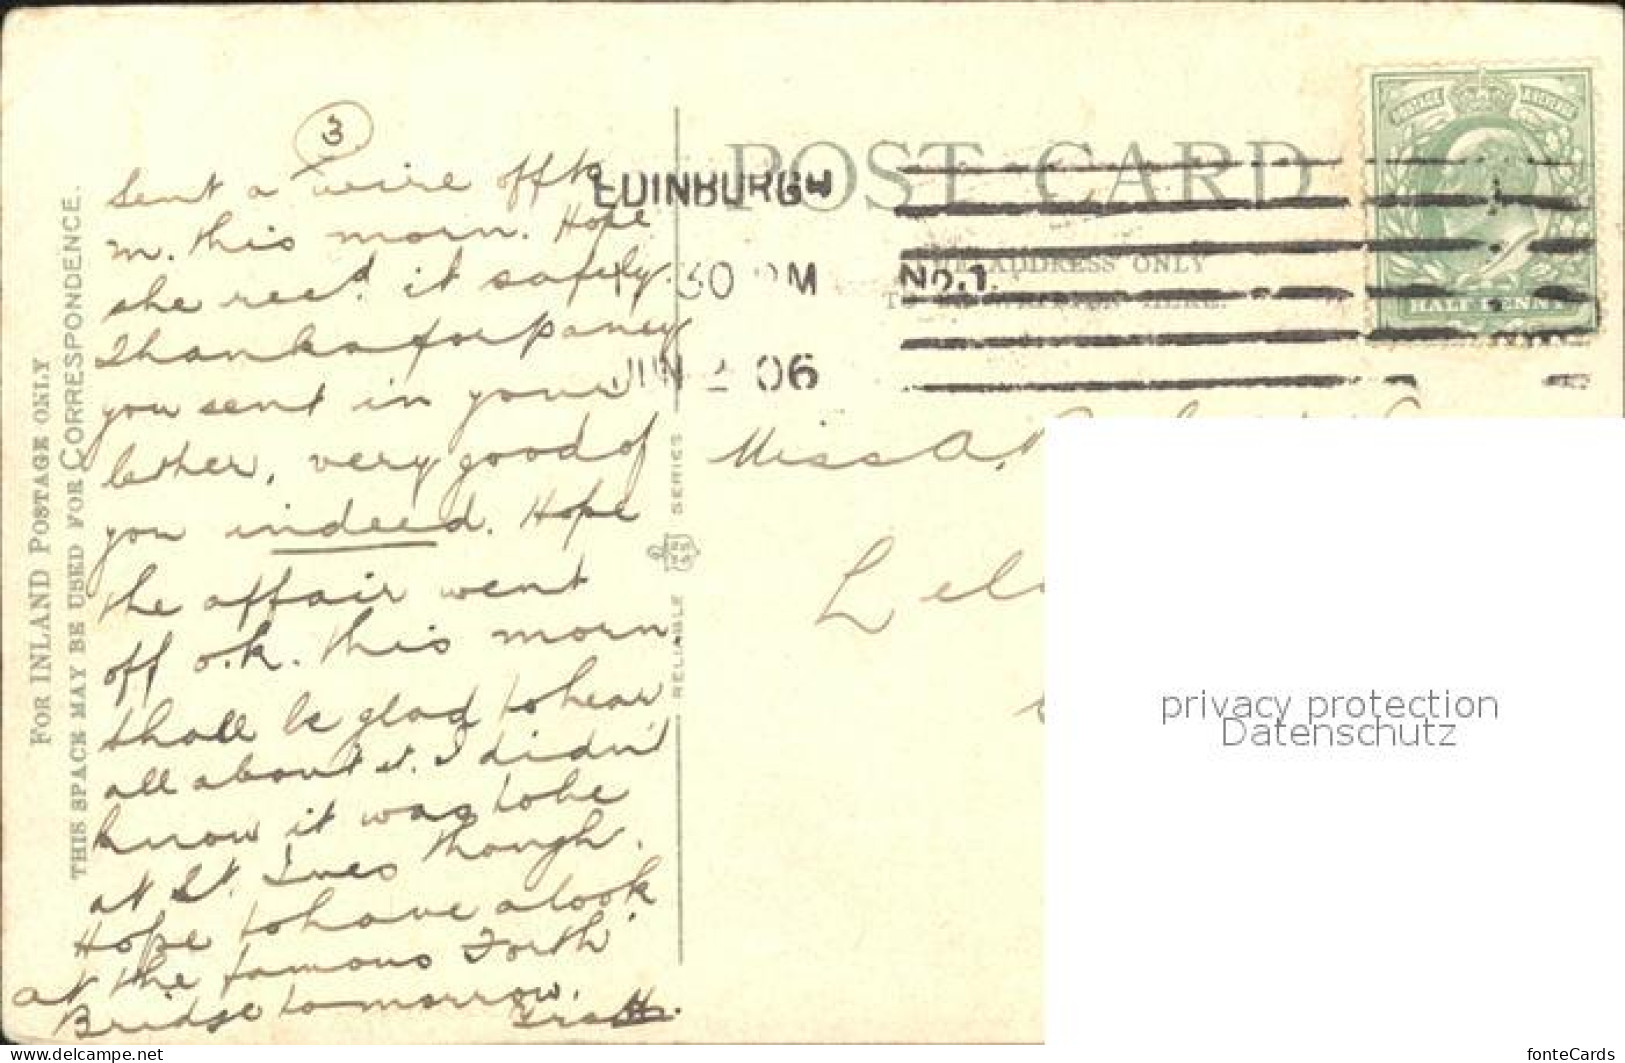 FOR INLAND POSTAGE ONLY
THIS SPACE MAY BE USED FOR CORRESPONDENCE.
3
Sent a wire off to
m. this morn. Hope
she recd. it safely.
Thanks for pansy
you sent in your
letter, very good of
you indeed. Hope
the affair went
off o.k. this morn
shall be glad to hear
all about it. I didn't
know it was to be
at St. Ives though.
Hope to have a look
at the famous "Forth"
Bridge to-morrow.
H.
RELIABLE WR&S SERIES
POST CARD
THE ADDRESS ONLY
TO BE WRITTEN HERE.
EDINBURGH
30 PM No.1.
JUN 06
POSTAGE REVENUE
HALF PENNY
Miss A.
privacy protection
Datenschutz
www.delcampe.net
fonteCards